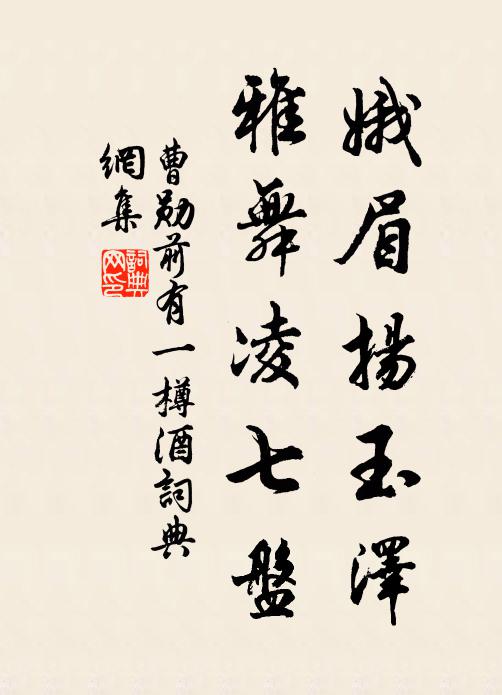 娥眉揚玉澤
雅舞凌七盤
曹勛前有一樽酒詞典
網集
詞典
网印